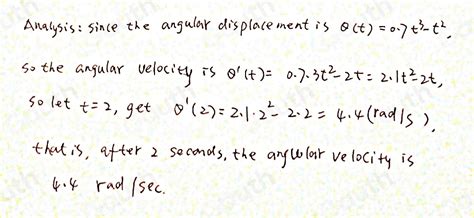 Analysis: since the angular displacement is θ(t) = 0.7t³-t²,
so the angular velocity is θ'(t) = 0.7·3t²-2t = 2.1t²-2t,
so let t=2, get θ'(2)=2.1·2²-2·2 = 4.4(rad/s),
that is, after 2 seconds, the angular velocity is
4.4 rad/sec.